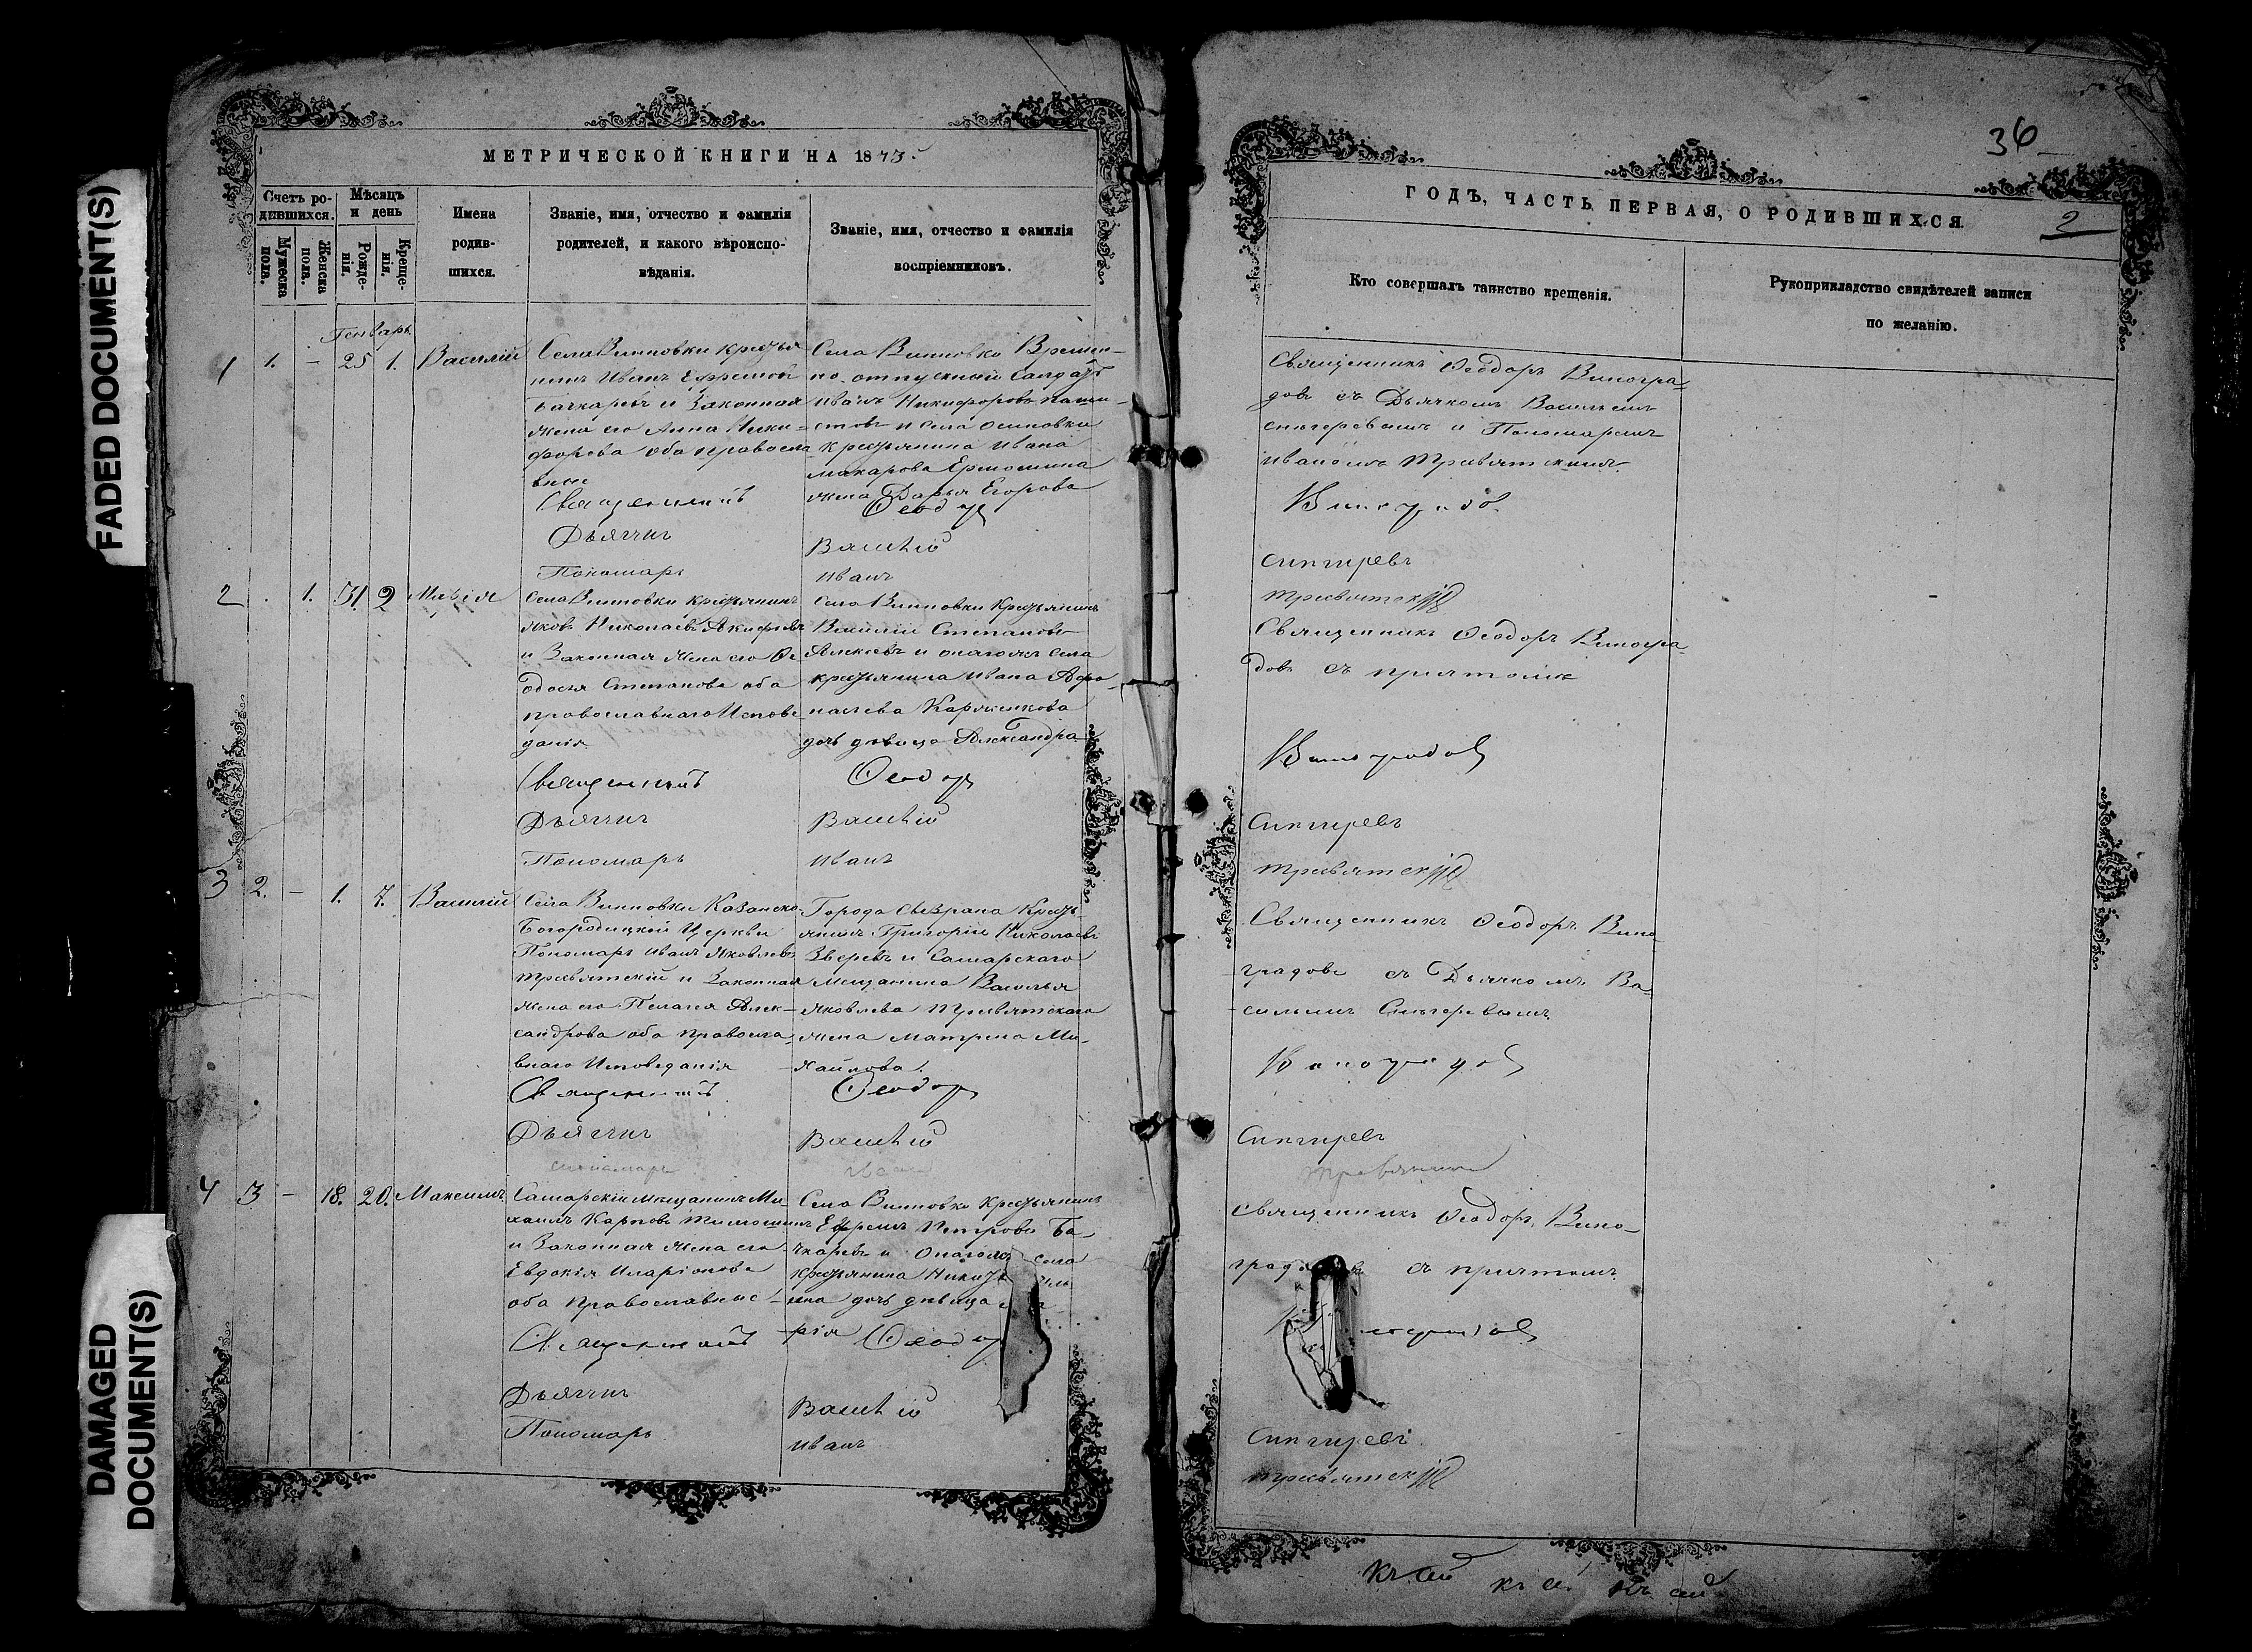 FADED DOCUMENT(S)
DAMAGED
DOCUMENT(S)
МЕТРИЧЕСКОЙ КНИГИ НА 1873.
Счетъ ро-
дившихся.
Мужеска
пола.
Женска
пола.
Мѣсяцъ
и день
Рожде-
нія.
Креще-
нія.
Имена
родив-
шихся.
Званіе, имя, отчество и фамилія
родителей, и какого вѣроиспо-
вѣданія.
Званіе, имя, отчество и фамилія
воспріемниковъ.
Генварь
1 1. – 25 1. Василій
Села Винновки крестья
нинъ Иванъ Ефремовъ
Бачкаревъ и Законная
жена его Анна Ники-
форова оба правосла
вные
Села Винновки Времен-
но-отпускный Салдатъ
Иванъ Никифоровъ
и села осиновки
Крестьянина Ивана
Макарова Ермошина
жена Дарья Егорова
Священникъ Ѳеодоръ
Дьячекъ Василій
Пономарь Иванъ
2 . 1. 31 2 Марія
Села Винновки крестьянинъ
Яковъ Николаевъ
и Законная жена его Ѳе
одосья Степанова оба
православнаго Испове
данія
Села Винновки Крестьянинъ
Василій Степановъ
Алексевъ и онагожъ села
крестьянина Ивана Афа
насьева
дочь девица Александра
Священникъ Ѳеодоръ
Дьячекъ Василій
Пономарь Иванъ
3 2. – 1. 7. Василій
Села Винновки Казанско-
Богородицкой Церкви
Пономарь Иванъ Яковлевъ
Тресвятскій и Законная
жена его Пелагея Алек-
сандрова оба правосла
внаго Исповеданія
Города Сызрана Кресть-
янинъ Григорій Николаевъ
Зверевъ и Самарскаго
Мещанина Василья
Яковлева Тресвятскаго
жена Матрена Ми-
хайлова.
Священникъ Ѳеодоръ
Дьячекъ Василій
пономарь Иванъ
4 3 – 18. 20. Максимъ
Самарскій мещанинъ Ми-
хаилъ Карповъ Тимошинъ
и Законная жена его
Евдокія Иларіонова
оба Православные
Села Винновки Крестьянинъ
Ефремъ Петровъ Ба-
чкаревъ и Онагожъ села
крестьянина
дочь девица
рія
Священникъ Ѳеодоръ
Дьячекъ Василій
Пономарь Иванъ
36
ГОДЪ, ЧАСТЬ ПЕРВАЯ, О РОДИВШИХСЯ
2
Кто совершалъ таинство крещенія.
Рукоприкладство свидѣтелей записи
по желанію.
Священникъ Ѳеодоръ Виногра-
довъ съ Дьячкомъ Васильемъ
Снегеревымъ и Пономаремъ
Иваномъ Тресвятскимъ.
Виноградовъ
Снигиревъ
Тресвятскій
Священникъ Ѳеодоръ Виногра-
довъ съ причтомъ
Виноградовъ
Снигиревъ
Тресвятскій
Священникъ Ѳеодоръ Вино
градовъ съ Дьячкомъ Ва-
сильемъ Снегеревымъ.
Виноградовъ
Снигиревъ
Священникъ Ѳеодоръ Вино-
съ причтомъ.
Снигиревъ
Тресвятскій